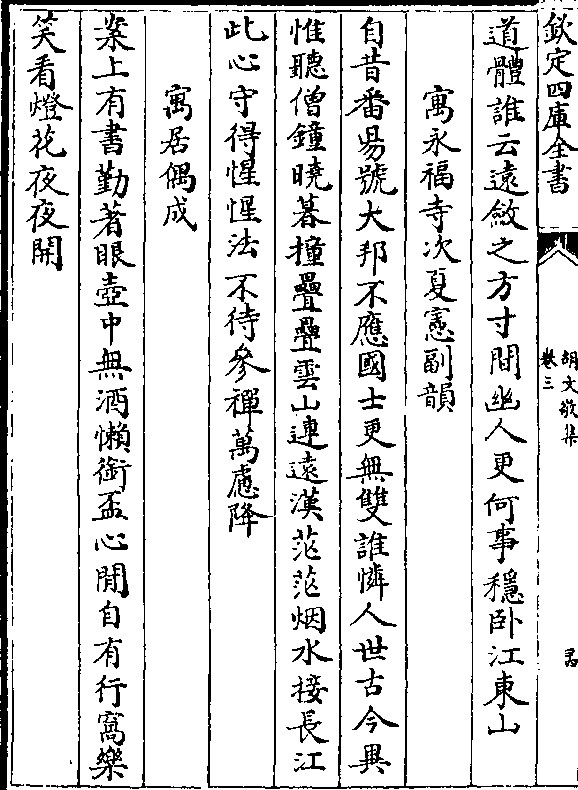 欽定四庫全書
胡文敬集
卷三
道體誰云遠斂之方寸間幽人更何事穩卧江東山
寓永福寺次夏憲副韻
自昔番昜號大邦不應國士更無雙誰憐人世古今異
惟聽僧鐘曉暮撞疊疊雲山連遠漢茫茫烟水接長江
此心守得惺惺法不待參禪萬慮降
寓居偶成
案上有書勤著眼壺中無酒懶銜盃心閒自有行窩樂
笑看燈花夜夜開